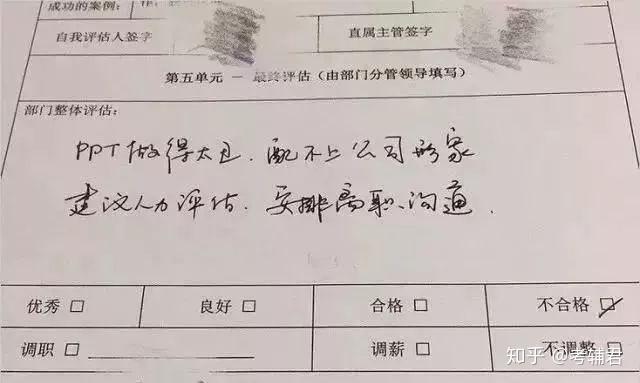 成功的案例:
自我评估人签字 直属主管签字
第五单元 — 最终评估（由部门分管领导填写）
部门整体评估:
PPT做得太丑、配不上公司形象
建议人力评估、安排离职沟通.
优秀 □ 良好 □ 合格 □ 不合格 ☑
调职 □ 调薪 □ 不调整 □
知乎 @考辅君